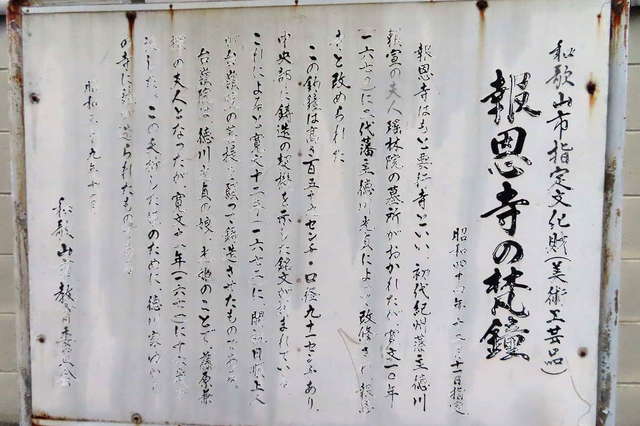 和歌山市指定文化財(美術工芸品)
報恩寺の梵鐘
昭和四十 年 十一日指定
報恩寺はもと要行寺といい、初代紀州藩主徳川
頼宣の夫人瑶林院の墓所がおかれたが、寛文一〇年
一六七〇に二代藩主徳川光貞によって改修され報恩
寺と改められた
この釣鐘は高さ百五十 センチ・口径九十一センチあり、
中央部に鋳造の契機を示した銘文が刻まれている
これによると、寛文十二年(一六七二)に開祖日順上人
が の菩提を願って鋳造させたもので
台嶽院は徳川光貞の娘 のことで藤原兼
の夫人となったが、寛文 年(一六七一)に十 歳で
した。この夭折した のために、徳川家ゆかり
の寺に鐘が造られたもので
昭和 九年
和歌山市教育委員会